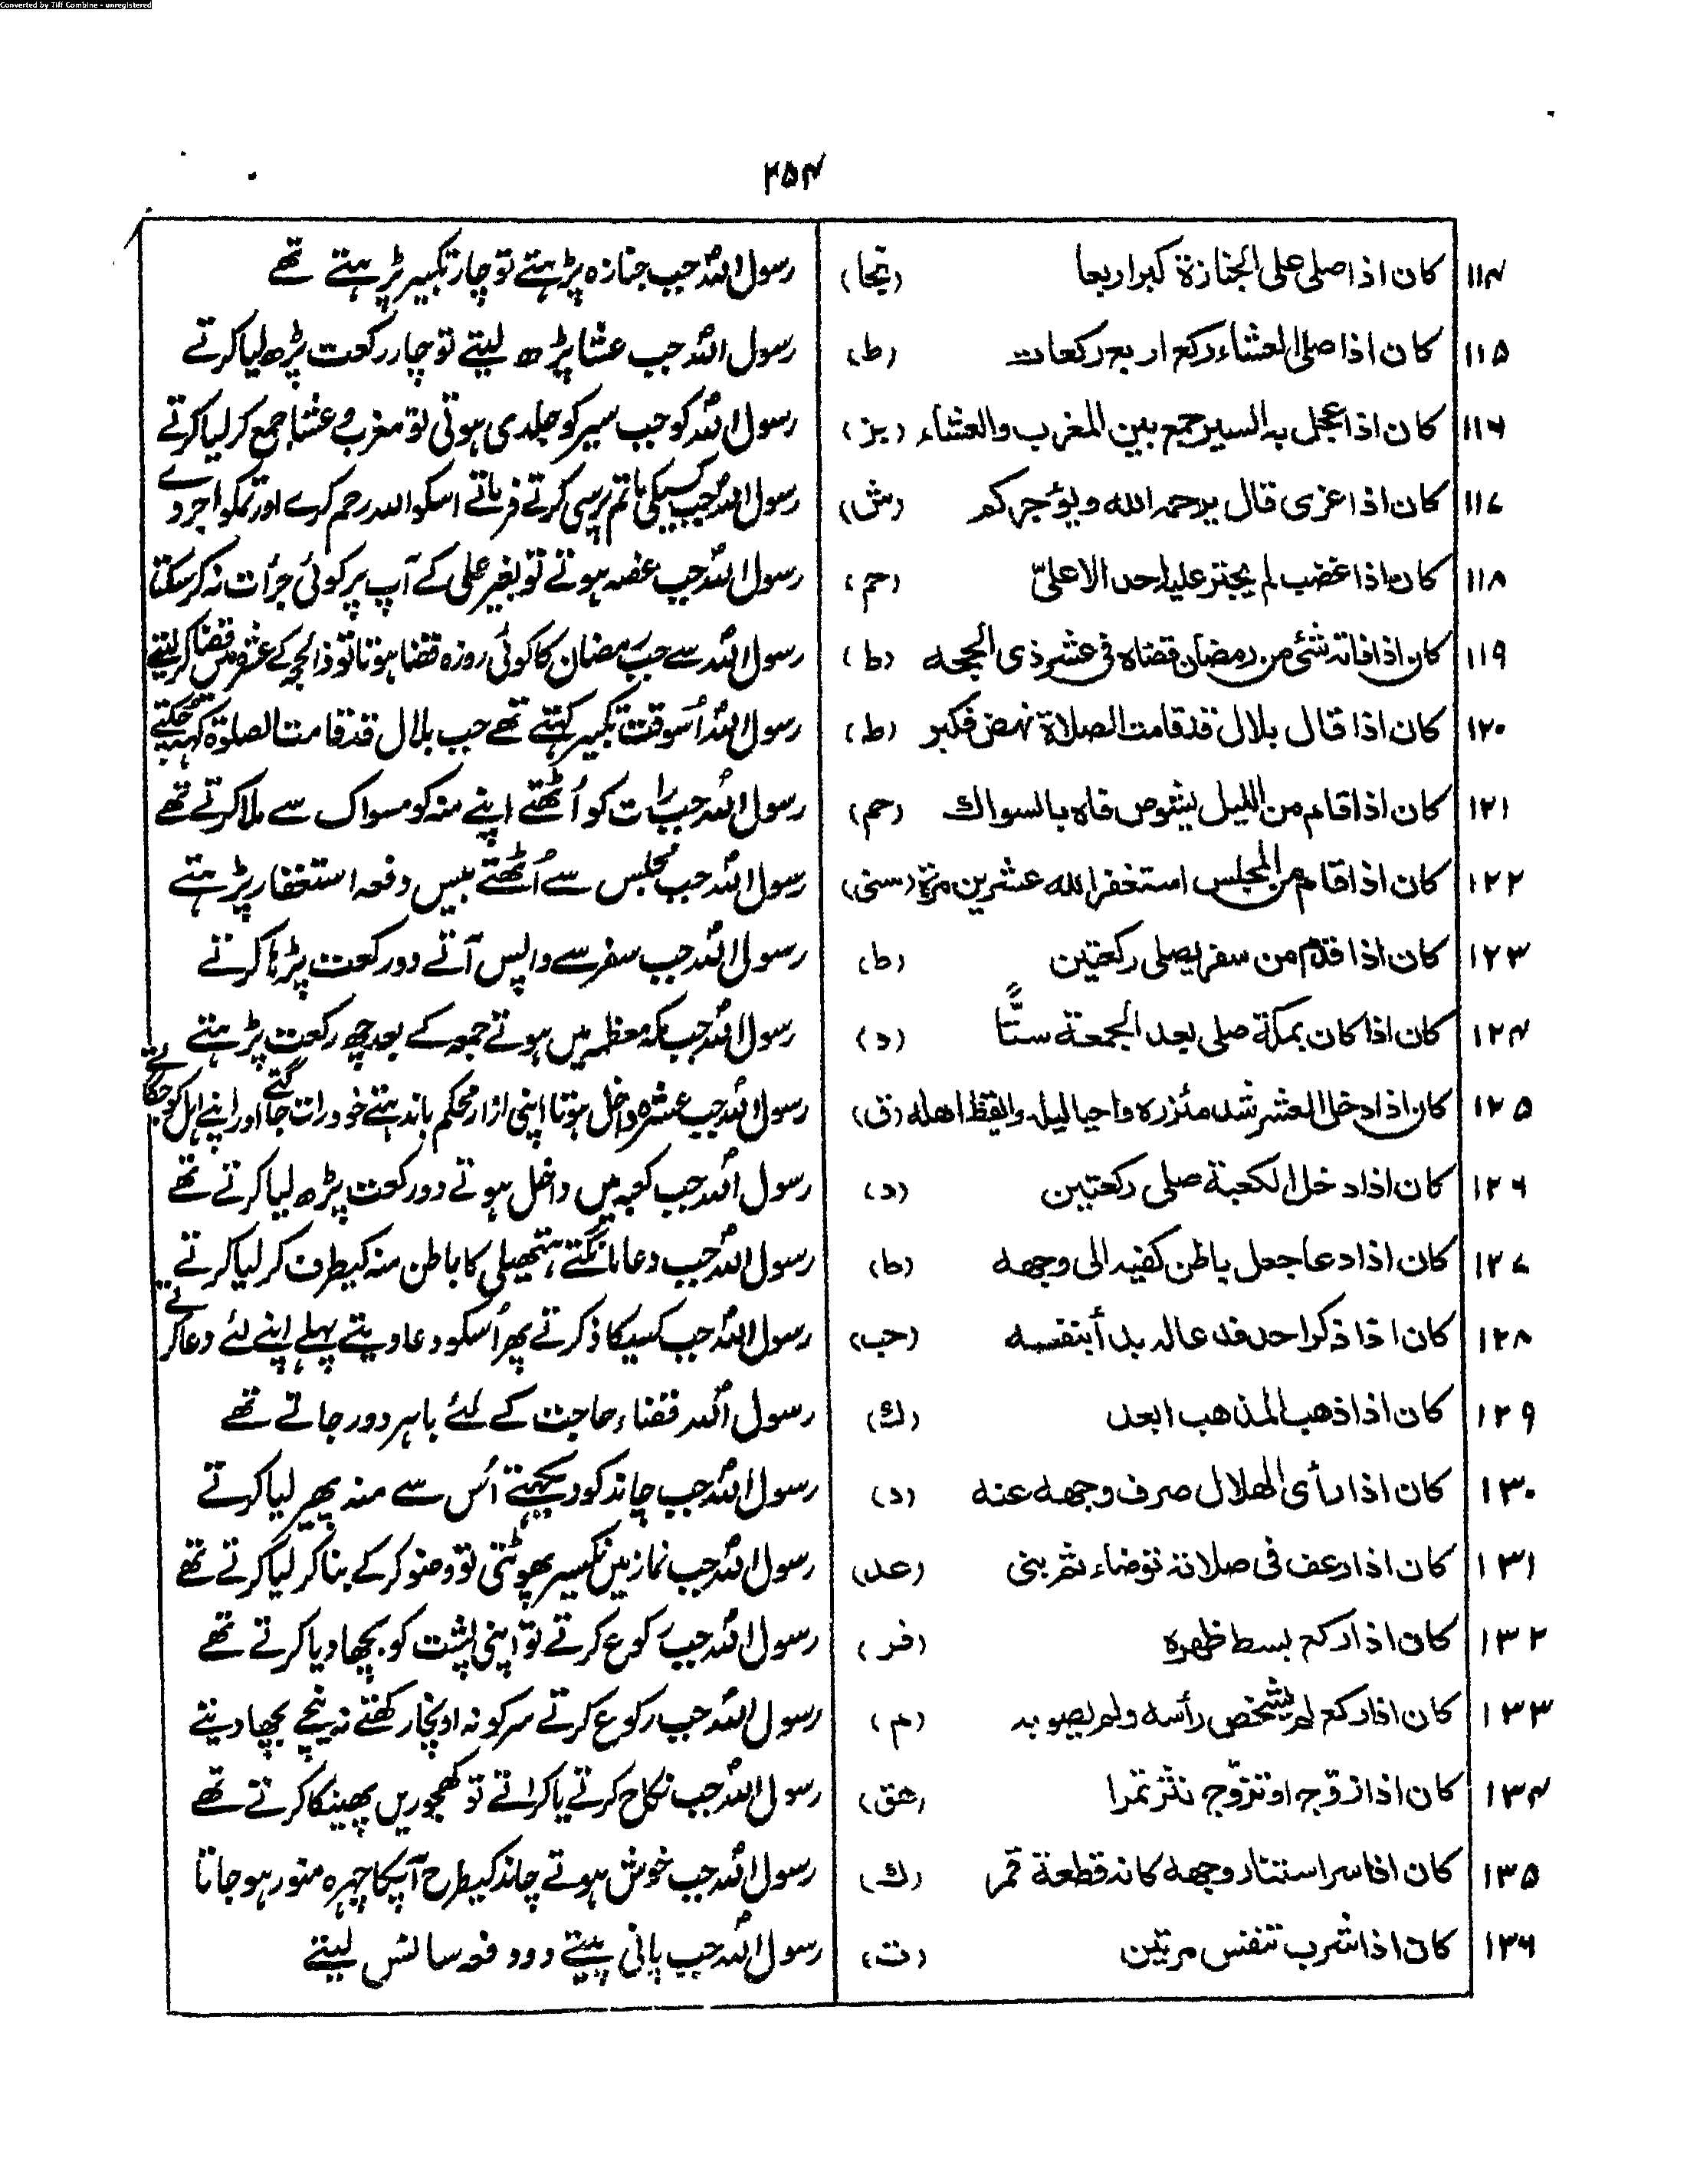 Converted by Tiff Combine - unregistered
۲۵۴
۱۱۴ کان اذا صلی علی الجنازة کبر اربعا (تجا) رسول اللہ جب جنازہ پڑہتے تو چار تکبیر پڑہتے تھے
۱۱۵ کان اذا صلی العشاء رکع اربع رکعات (ط) رسول اللہ جب عشا پڑھ لیتے تو چار رکعت پڑھ لیا کرتے
۱۱۶ کان اذا عجل به السیر جمع بین المغرب والعشاء (بز) رسول اللہ کو جب سیر کو جلدی ہوتی تو مغرب و عشا جمع کر لیا کرتے
۱۱۷ کان اذا عزی قال یرحمه الله ویؤجرکم (ش) رسول اللہ جب کسیکی ماتم پرسی کرتے فرماتے اسکو اللہ رحم کرے اور تمکو اجر دے
۱۱۸ کان اذا غضب لم یجتز علیه احد الا علیّ (حم) رسول اللہ جب غصہ ہوتے تو بغیر علی کے آپ پر کوئی جرأت نہ کر سکتا
۱۱۹ کان اذا فاته شئی من رمضان قضاه فی عشر ذی الحجه (ط) رسول اللہ سے جب رمضان کا کوئی روزہ قضا ہوتا تو ذالحجہ کے عشرہ میں قضا کر لیتے
۱۲۰ کان اذا قال بلال قد قامت الصلاة نهض فکبر (ط) رسول اللہ اُسوقت تکبیر کہتے تھے جب بلال قد قامت الصلوۃ کہہ چکتے
۱۲۱ کان اذا قام من اللیل یشوص فاه بالسواك (حم) رسول اللہ جب رات کو اُٹھتے اپنے منہ کو مسواک سے ملا کرتے تھے
۱۲۲ کان اذا قام من المجلس استغفر الله عشرین مرة (سنی) رسول اللہ جب مجلس سے اُٹھتے بیس دفعہ استغفار پڑہتے
۱۲۳ کان اذا قدم من سفر یصلی رکعتین (ط) رسول اللہ جب سفر سے واپس آتے دو رکعت پڑہا کرتے
۱۲۴ کان اذا کان بمکة صلی بعد الجمعة ستًّا (د) رسول اللہ جب مکہ معظمہ میں ہوتے جمعہ کے بعد چھ رکعت پڑہتے
۱۲۵ کان اذا دخل العشر شد مئزره واحیا لیله وایقظ اهله (ق) رسول اللہ جب عشرہ داخل ہوتا اپنی ازار محکم باندہتے خود رات جاگتے اور اپنے اہل کو جگاتے
۱۲۶ کان اذا دخل الکعبة صلی رکعتین (د) رسول اللہ جب کعبہ میں داخل ہوتے دو رکعت پڑھ لیا کرتے تھے
۱۲۷ کان اذا دعا جعل باطن کفیه الی وجهه (ط) رسول اللہ جب دعا مانگتے ہتھیلی کا باطن منہ کیطرف کر لیا کرتے
۱۲۸ کان اذا ذکر احد فدعا له بدأ بنفسه (حب) رسول اللہ جب کسیکا ذکر کرتے پھر اُسکو دعا دیتے پہلے اپنے لئے دعا کرتے
۱۲۹ کان اذا ذهب المذهب ابعد (ك) رسول اللہ قضاء حاجت کے لئے باہر دور جاتے تھے
۱۳۰ کان اذا رأی الهلال صرف وجهه عنه (د) رسول اللہ جب چاند کو دیکہتے اُس سے منہ پھیر لیا کرتے
۱۳۱ کان اذا رعف فی صلاته توضاء ثم بنی (عد) رسول اللہ جب نماز میں نکسیر پھوٹتی تو وضو کر کے بنا کر لیا کرتے تھے
۱۳۲ کان اذا رکع بسط ظهره (فر) رسول اللہ جب رکوع کرتے تو اپنی پشت کو بچھا دیا کرتے تھے
۱۳۳ کان اذا رکع لم یشخص رأسه ولم یصوبه (م) رسول اللہ جب رکوع کرتے سر کو نہ اونچا رکھتے نہ نیچے بچھا دیتے
۱۳۴ کان اذا زوّج او تزوّج نثر تمرا (هق) رسول اللہ جب نکاح کرتے یا کراتے تو کھجوریں پھینکا کرتے تھے
۱۳۵ کان اذا سر استنار وجهه کانه قطعة قمر (ك) رسول اللہ جب خوش ہوتے چاند کیطرح آپکا چہرہ منور ہو جاتا
۱۳۶ کان اذا شرب تنفس مرتین (ت) رسول اللہ جب پانی پیتے دو دفعہ سانس لیتے